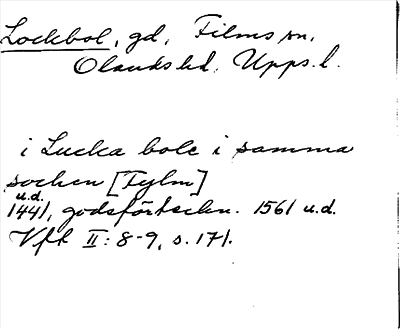 Lockbol, gd, Films sn,
Olands hd. Upps. l.
i Lucka bole i samma
socken [Fylm]
u.d.
1441, godsförteckn. 1561 u.d.
Vfk II: 8-9, s. 171.